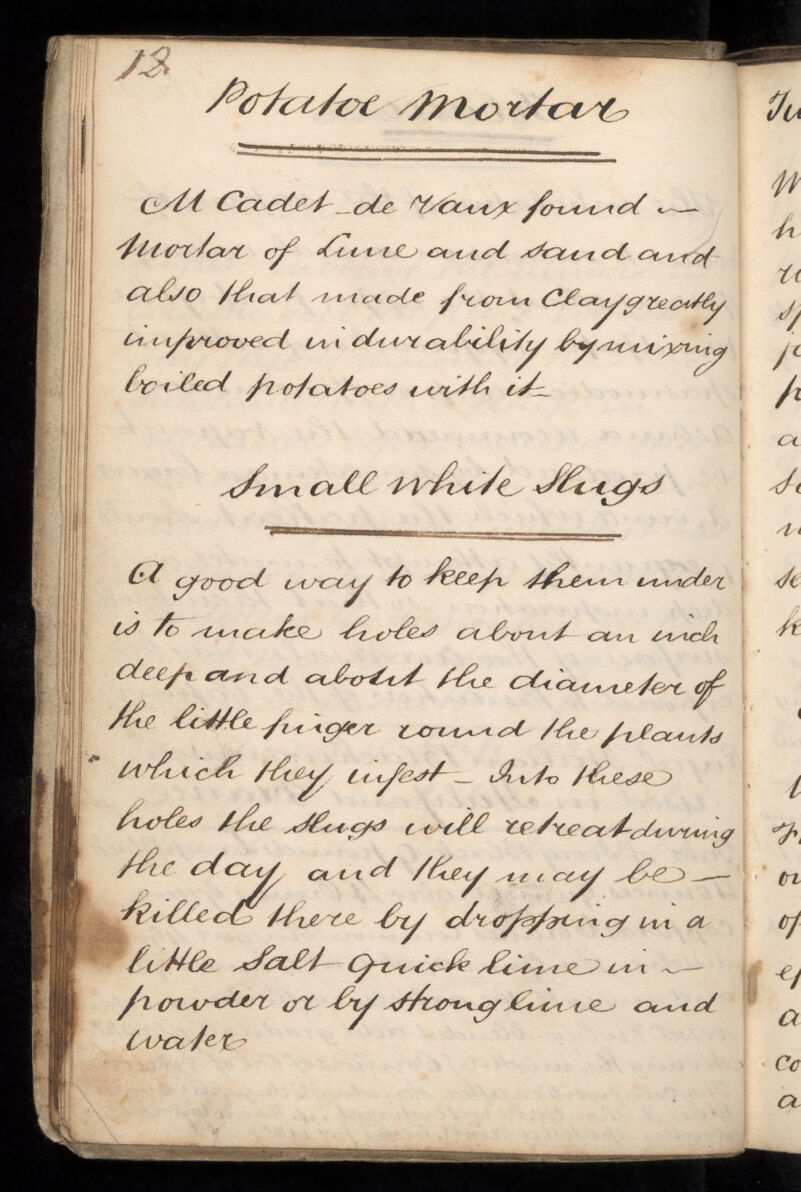 12
Potatoe Mortar
M Cadet de Vaux found
Mortar of Lime and sand and
also that made from Clay greatly
improved in durability by mixing
boiled potatoes with it
Small White Slugs
A good way to keep them under
is to make holes about an inch
deep and about the diameter of
the little finger round the plants
which they infest – Into these
holes the slugs will retreat during
the day and they may be –
killed there by dropping in a
little Salt quick lime in
powder or by strong lime and
water